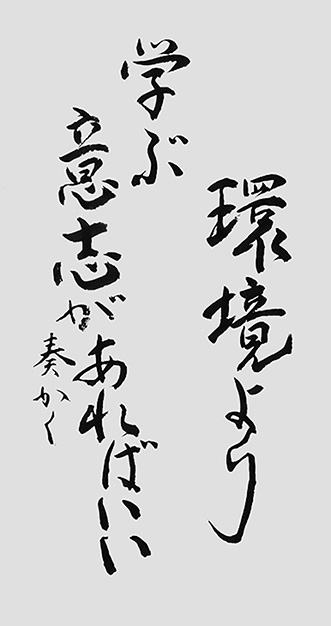 環境より
学ぶ
意志があればいい
奏かく